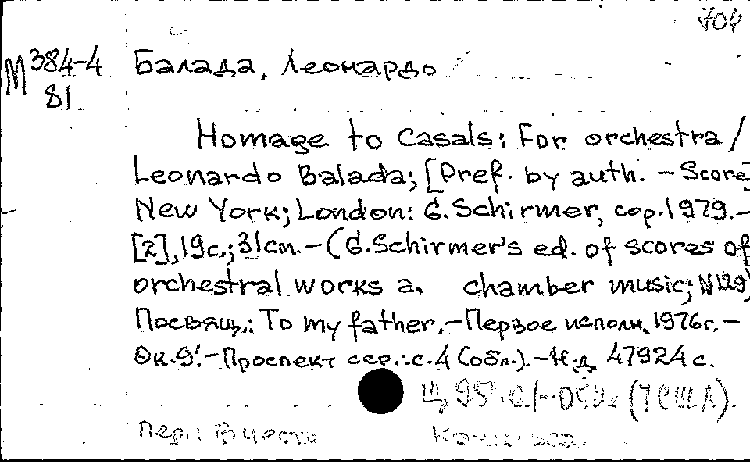 M 384-4
81
Балада, Леонардо
Homage to Casals; For orchestra /
Leonardo Balada; [Pref. by auth. - Score]
New York; London: G. Schirmer, cop. 1979.-
[2], 19 с.; 31 см. - (G. Schirmer's ed. of scores of
orchestral works a. chamber music; N129)
Посвящ.: To my father. - Первое исполн. 1976 г. -
Ок. 9'. - Проспект сер.: с. 4 (обл.). - Н.д. 47924 с.
Ц 95